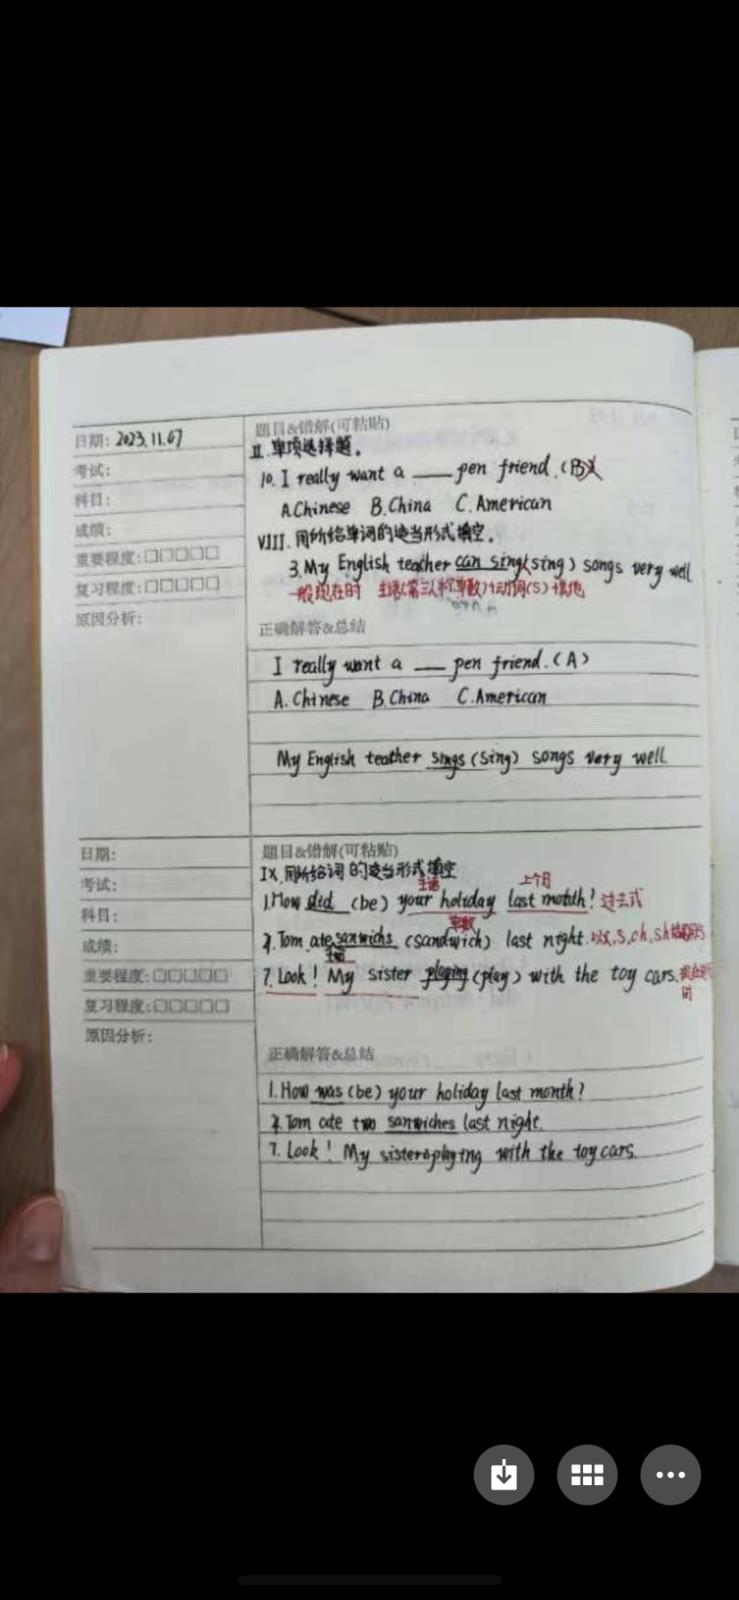 日期: 2023.11.07
题目&错解(可粘贴)
II. 单项选择题。
考试:
10. I really want a ____ pen friend. (B)
科目:
A.Chinese B.China C.American
成绩:
VIII. 用所给单词的适当形式填空。
重要程度:□□□□□
3. My English teacher can sing (sing) songs very well
复习程度:□□□□□
一般现在时 主语(第三人称单数)+动词(s)+其他
原因分析:
正确解答&总结
I really want a ___ pen friend. (A)
A. Chinese B.China C.American
My English teather sings (sing) songs very well.
日期:
题目&错解(可粘贴)
IX. 用所给词的适当形式填空
考试:
主语 上个月
1.How did (be) your holiday last month? 过去式
科目:
成绩:
Tom ate sanwichs (sandwich) last night. 以x,s,ch,sh
重要程度:□□□□□
7. Look! My sister playing (play) with the toy cars.
时
复习程度:□□□□□
原因分析:
正确解答&总结
1. How was (be) your holiday last month?
Tom ate two sanwiches last night.
7. Look! My sister playing with the toy cars.